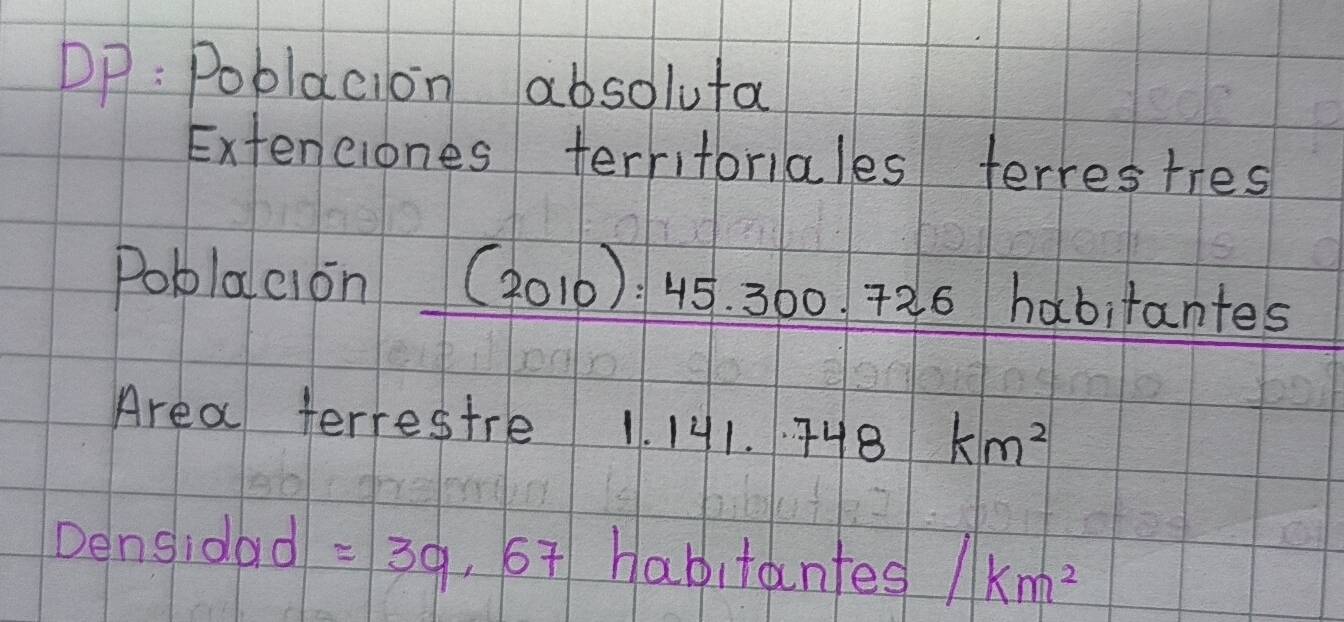 DP: Población absoluta
Extenciones territoriales terrestres
Población (2010): 45.300.726 habitantes
Area terrestre 1.141.748 km²
Densidad = 39,67 habitantes /km²